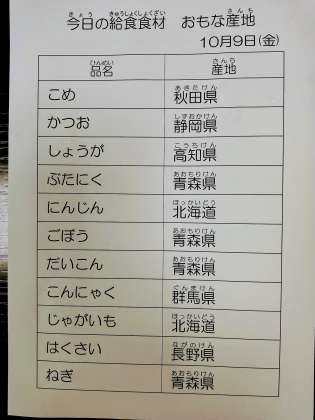 今日の給食食材　おもな産地
10月9日(金)
品名　産地
こめ　秋田県
かつお　静岡県
しょうが　高知県
ぶたにく　青森県
にんじん　北海道
ごぼう　青森県
だいこん　青森県
こんにゃく　群馬県
じゃがいも　北海道
はくさい　長野県
ねぎ　青森県